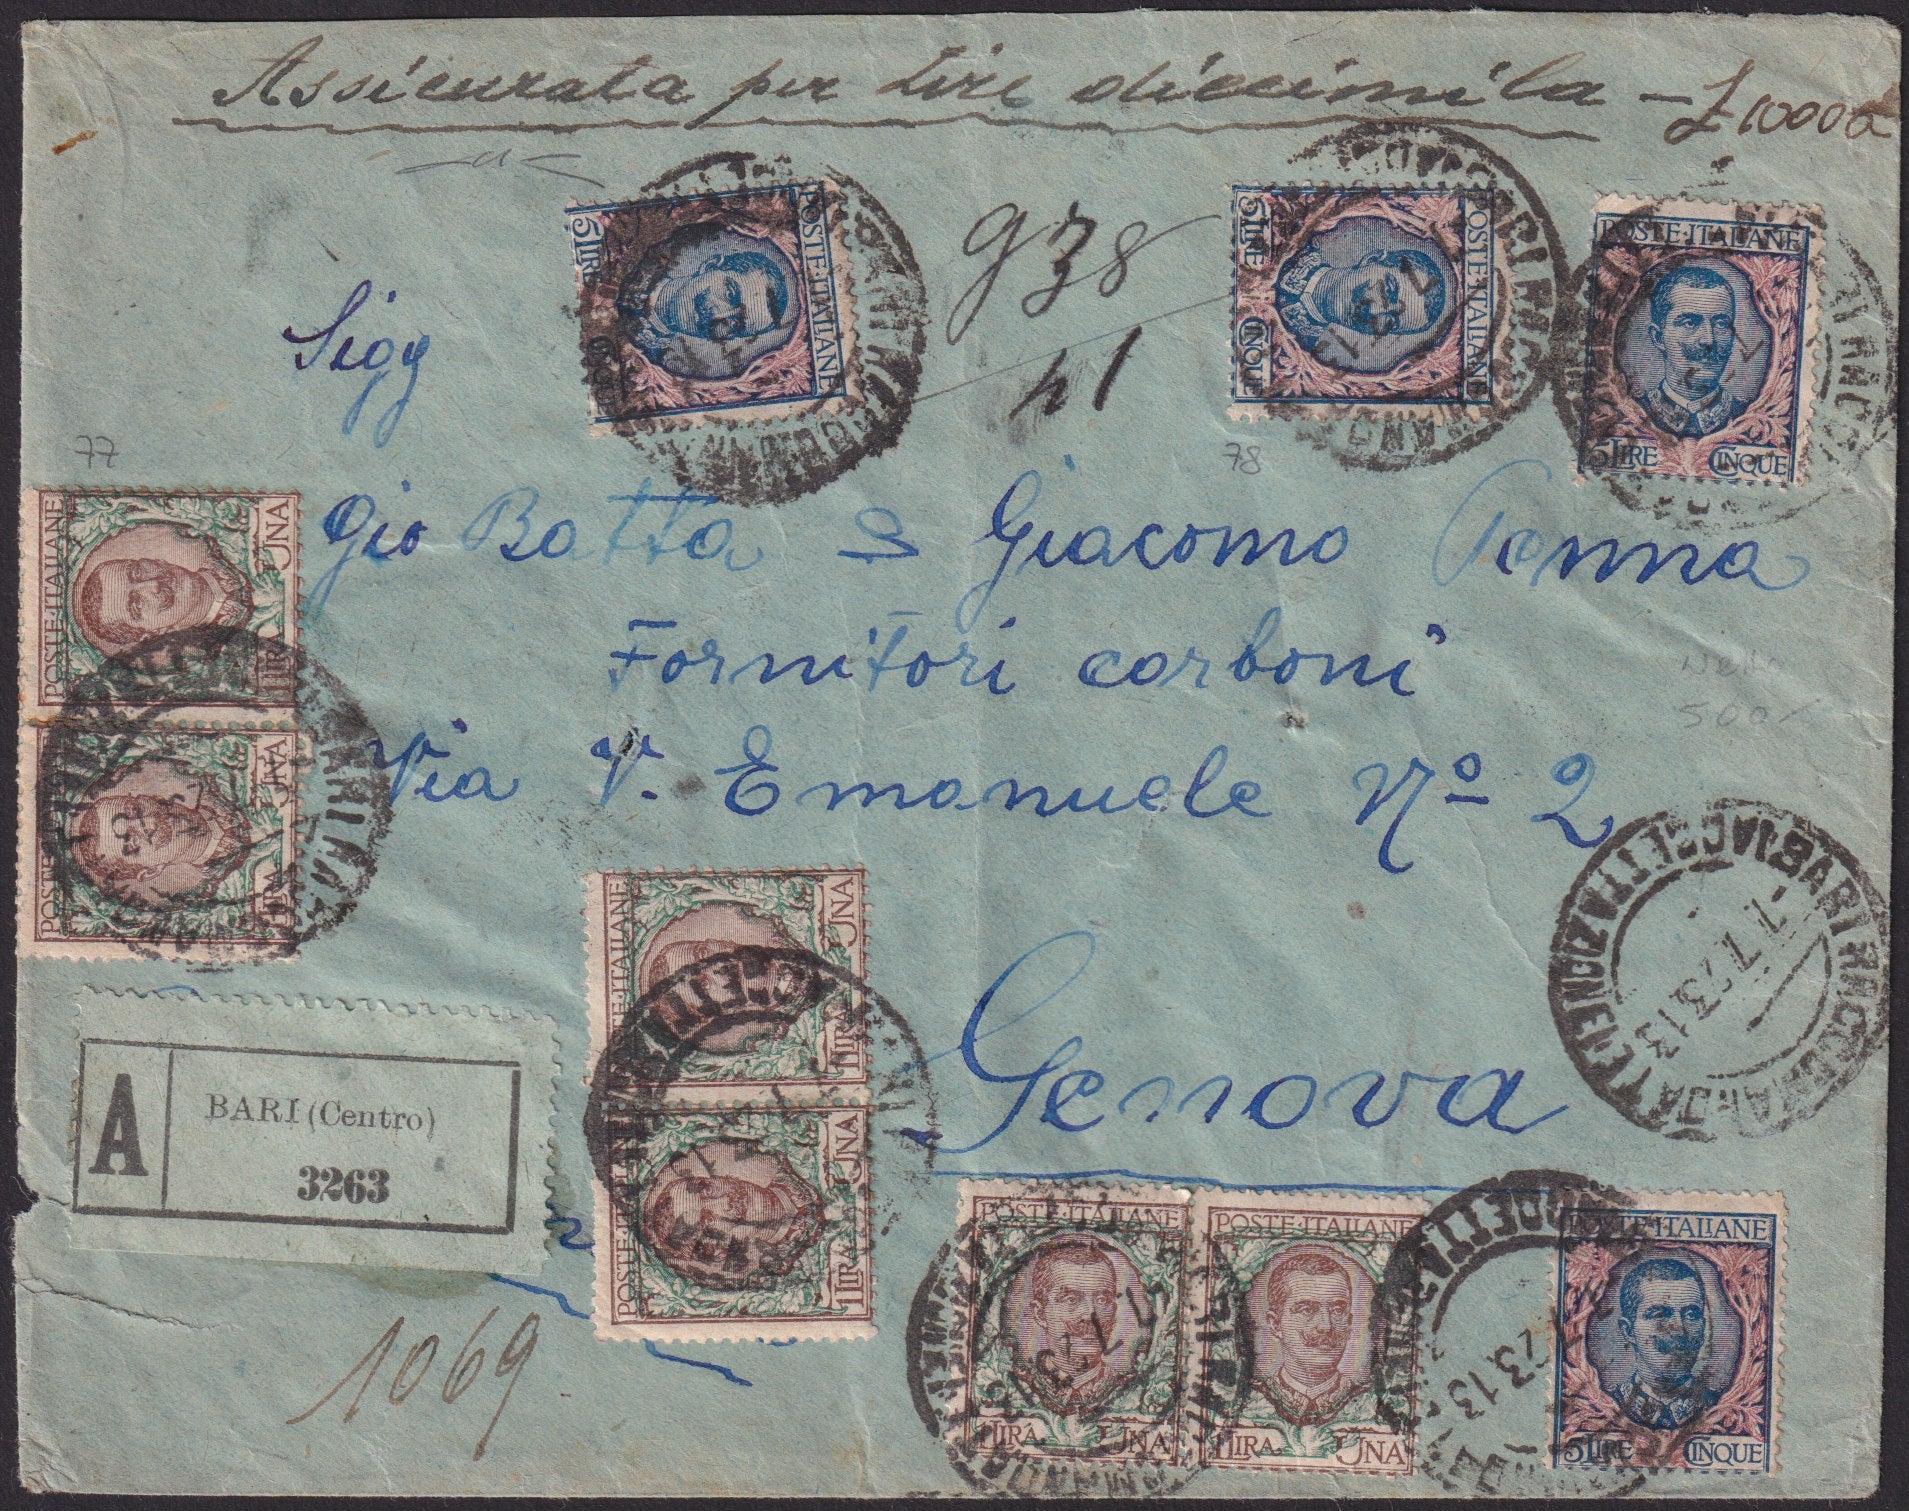 Assicurata per Lire diecimila - £ 10000
938
41
5 LIRE CINQUE
POSTE·ITALIANE
5 LIRE CINQUE
POSTE·ITALIANE
POSTE·ITALIANE
5 LIRE CINQUE
Sigg
77
78
Gio Batta e Giacomo Penna
Fornitori carboni
Nello
500
Via V. Emanuele Nº 2
POSTE·ITALIANE
1 LIRA UNA
POSTE·ITALIANE
1 LIRA UNA
POSTE·ITALIANE
1 LIRA UNA
POSTE·ITALIANE
1 LIRA UNA
BARI RACCOMANDATE
ACCETTAZIONE
7.7.23.13
Genova
A
BARI (Centro)
3263
POSTE·ITALIANE
1 LIRA UNA
POSTE·ITALIANE
1 LIRA UNA
POSTE·ITALIANE
5 LIRE CINQUE
1069